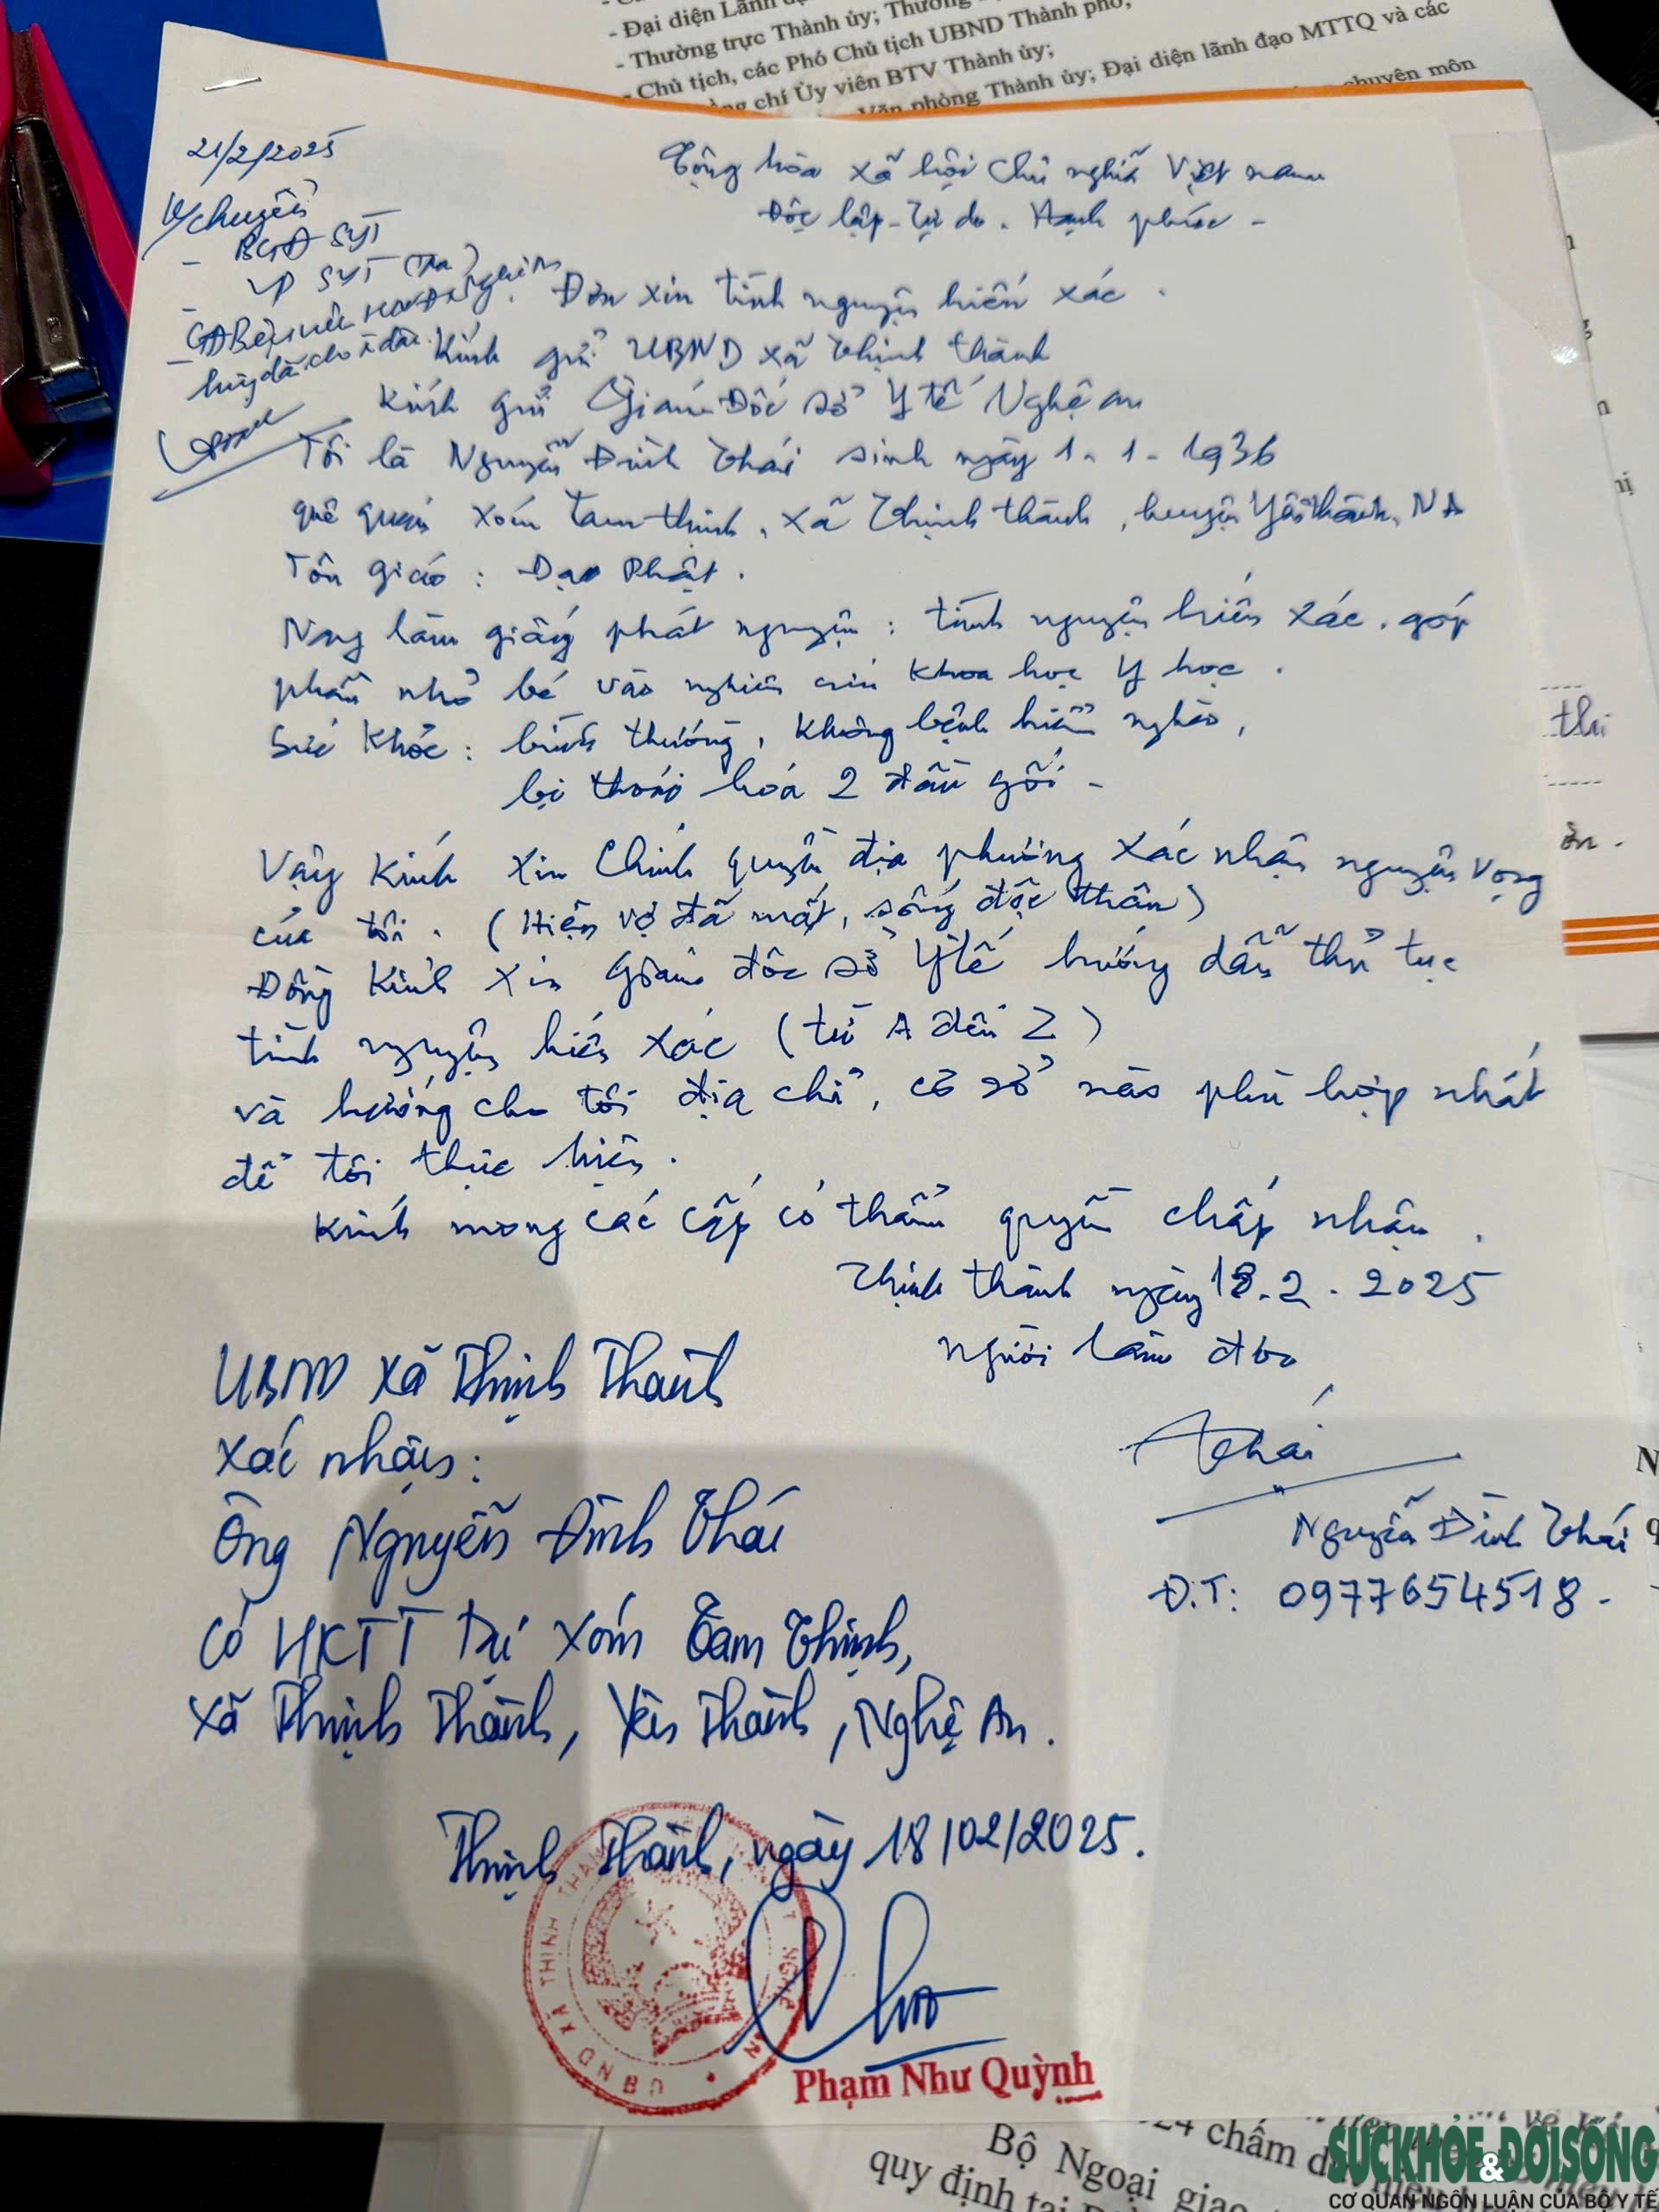 - Đại diện Lãnh
- Thường trực Thành ủy; Thường
- Chủ tịch, các Phó Chủ tịch UBND Thành phố;
chí Ủy viên BTV Thành ủy;
Văn phòng Thành ủy; Đại diện lãnh đạo MTTQ và các
chuyên môn
21/2/2025
K/chuyển
- BGĐ SYT
- VP SYT
Cộng hòa xã hội chủ nghĩa Việt nam
Độc lập - Tự do - Hạnh phúc -
Đơn xin tình nguyện hiến xác.
Kính gửi UBND xã Thịnh thành
Kính gửi Giám Đốc sở Y tế Nghệ an
Tôi là Nguyễn Đình Thái sinh ngày 1 - 1 - 1936
quê quán xóm Tam thịnh, xã Thịnh thành, huyện Yên thành, NA
Tôn giáo: Đạo Phật.
Nay làm giấy phát nguyện: tình nguyện hiến xác. góp
phần nhỏ bé vào nghiên cứu khoa học Y học.
Sức khỏe: bình thường, không bệnh hiểm nghèo,
bị thoái hóa 2 đầu gối -
Vậy kính xin Chính quyền địa phương xác nhận nguyện vọng
của tôi. (Hiện vợ đã mất, sống độc thân)
Đồng kính xin Giám đốc sở Y tế hướng dẫn thủ tục
tình nguyện hiến xác (từ A đến Z)
và hướng cho tôi địa chỉ, cơ sở nào phù hợp nhất
để tôi thực hiện.
Kính mong các cấp có thẩm quyền chấp nhận.
Thịnh thành ngày 18.2.2025
người làm đơn
Thái
Nguyễn Đình Thái
Đ.T: 0977654518 -
UBND xã Thịnh Thành
Xác nhận:
Ông Nguyễn Đình Thái
có HKTT tại xóm Tam Thịnh,
xã Thịnh Thành, Yên Thành, Nghệ An.
Thịnh Thành, ngày 18/02/2025.
UBND XÃ THỊNH
Phạm Như Quỳnh
24 chấm
Bộ Ngoại giao
quy định tại
SỨC KHỎE & ĐỜI SỐNG
CƠ QUAN NGÔN LUẬN CỦA BỘ Y TẾ